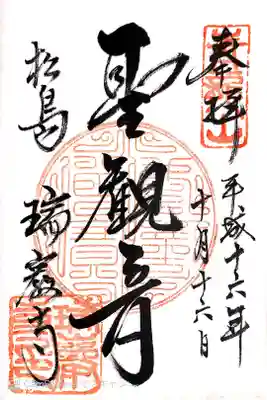 奉拝
平成十六年
十月十六日
聖観音
松島
瑞巌寺